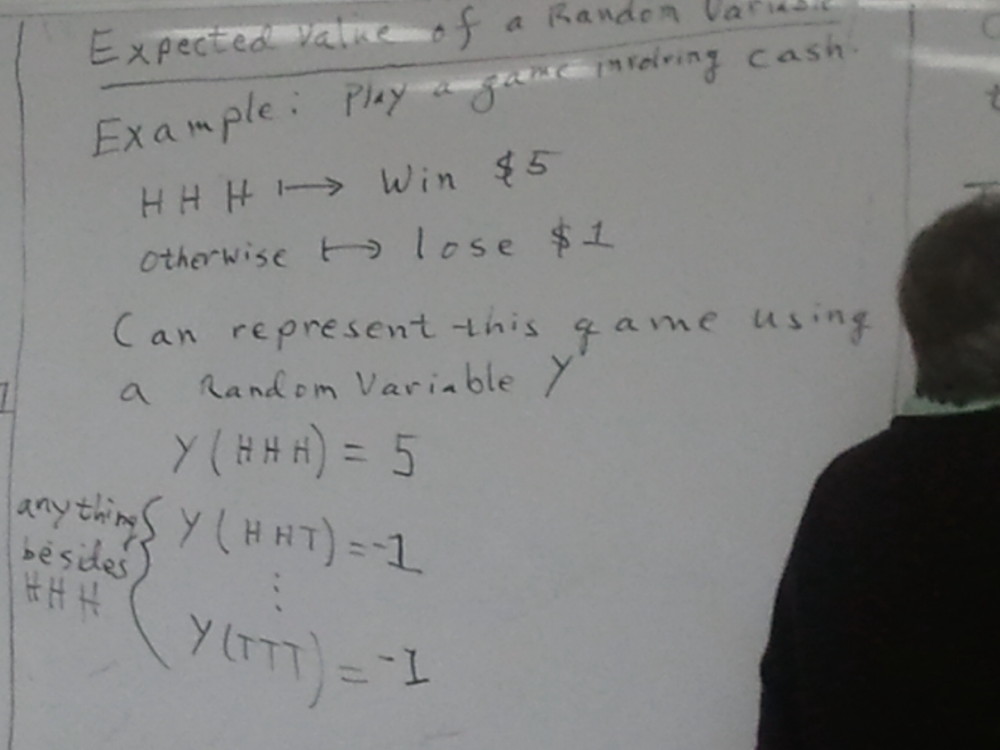 Expected Value of a Random Variable
Example: Play a game involving cash.
H H H ↦ Win $5
otherwise ↦ lose $1
Can represent this game using
a Random Variable Y
Y(HHH) = 5
anything
besides
HHH
Y(HHT) = -1
⋮
Y(TTT) = -1